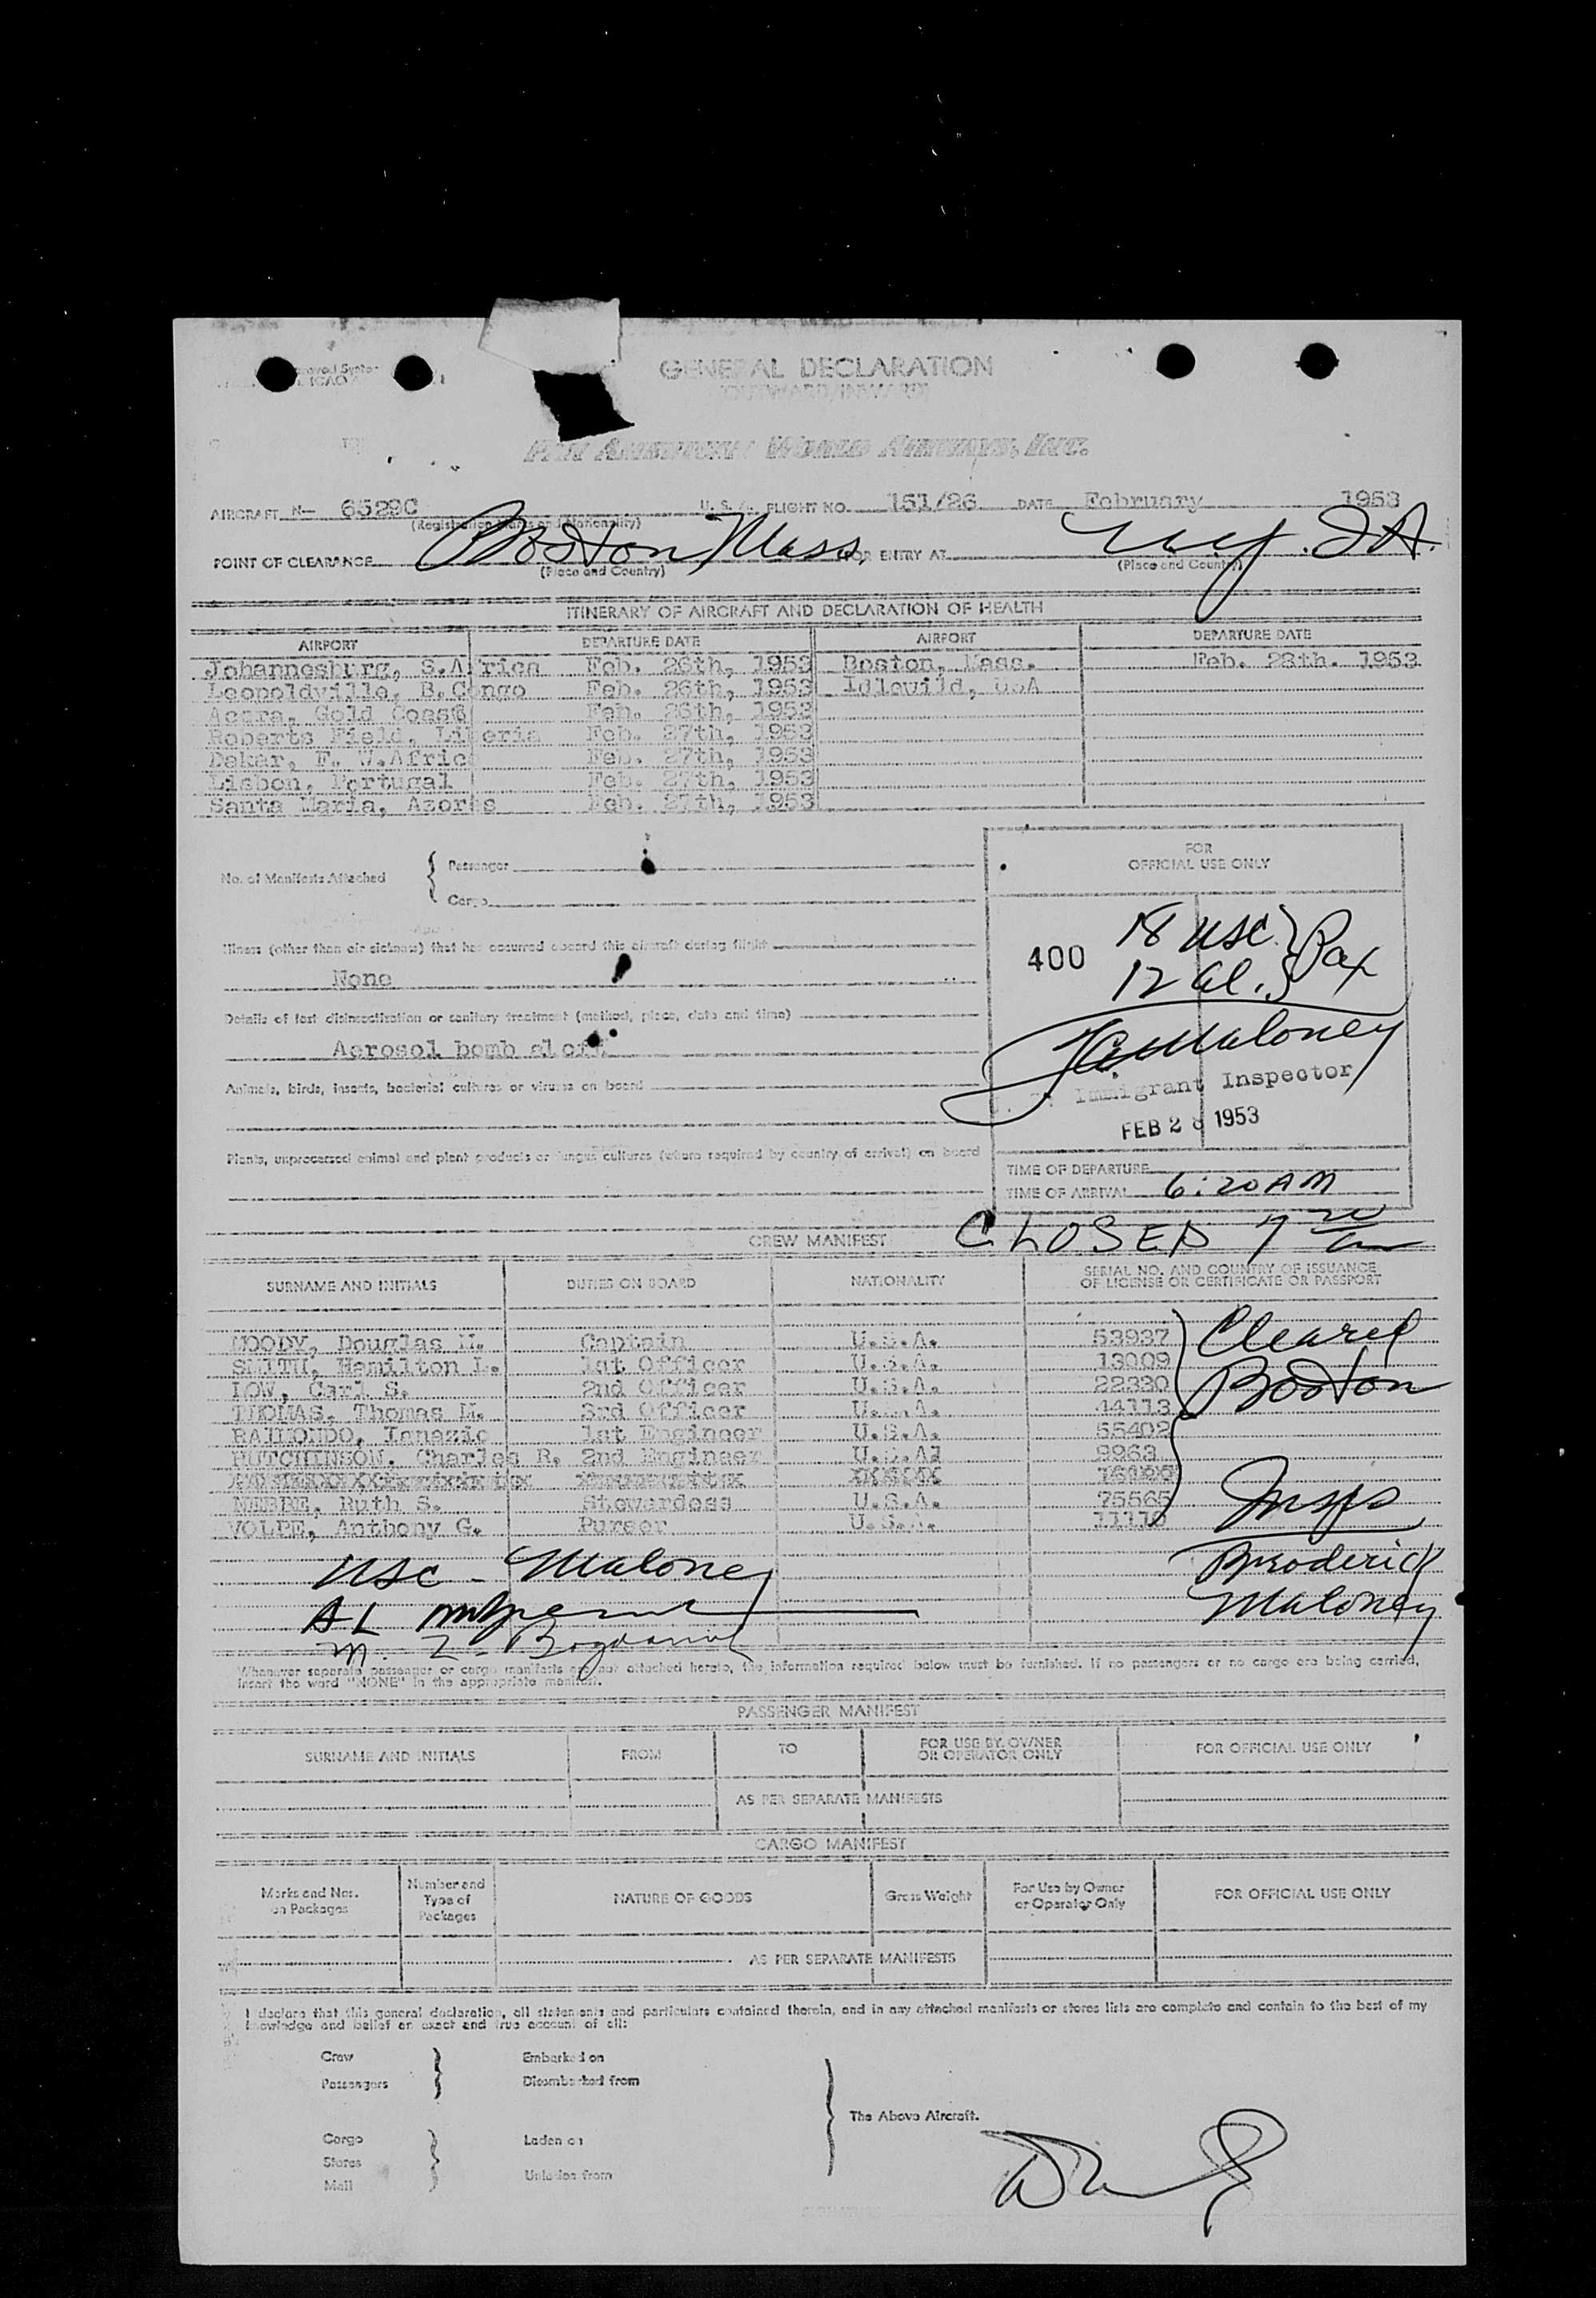 GENERAL DECLARATION
(OUTWARD/INWARD)
PAN AMERICAN WORLD AIRWAYS, INC.
AIRCRAFT N- 6529C U. S. A. FLIGHT NO. 151/26 DATE February 1953
(Registration Marks and Nationality)
POINT OF CLEARANCE Boston Mass. FOR ENTRY AT N.Y. I A.
(Place and Country) (Place and Country)
ITINERARY OF AIRCRAFT AND DECLARATION OF HEALTH
AIRPORT DEPARTURE DATE AIRPORT DEPARTURE DATE
Johannesburg, S.Africa Feb. 26th, 1953 Boston, Mass. Feb. 28th. 1953
Leopoldville, B.Congo Feb. 26th, 1953 Idlewild, USA
Accra, Gold Coast Feb. 26th, 1953
Roberts Field, Liberia Feb. 27th, 1953
Dakar, F. W.Africa Feb. 27th, 1953
Lisbon, Portugal Feb. 27th, 1953
Santa Maria, Azores Feb. 27th, 1953
FOR
OFFICIAL USE ONLY
No. of Manifests Attached
Passenger
Cargo
Illness (other than air sickness) that has occurred aboard this aircraft during flight
None
Details of last disinsectization or sanitary treatment (method, place, date and time)
Aerosol bomb aloft.
Animals, birds, insects, bacterial cultures or viruses on board
Plants, unprocessed animal and plant products or fungus cultures (where required by country of arrival) on board
400 18 USC.
12 al. Pax
Maloney
Immigrant Inspector
FEB 28 1953
TIME OF DEPARTURE
TIME OF ARRIVAL 6:20 AM
CLOSED 7 20 am
CREW MANIFEST
SURNAME AND INITIALS DUTIES ON BOARD NATIONALITY SERIAL NO. AND COUNTRY OF ISSUANCE
OF LICENSE OR CERTIFICATE OR PASSPORT
MOODY, Douglas M. Captain U.S.A. 53937 Cleared
SMITH, Hamilton L. 1st Officer U.S.A. 13009
LOW, Carl S. 2nd Officer U.S.A. 22330 Boston
THOMAS, Thomas M. 3rd Officer U.S.A. 44113
RAIMONDO, Ignazio 1st Engineer U.S.A. 55402
HUTCHINSON, Charles R. 2nd Engineer U.S.A. 9963
Ruth S. Stewardess U.S.A. 75565 Insps
VOLPE, Anthony G. Purser U.S.A. 11110
USC - Maloney Broderick
AL Maloney
Whenever separate passenger or cargo manifests are not attached hereto, the information required below must be furnished. If no passengers or no cargo are being carried,
insert the word "NONE" in the appropriate manifest.
PASSENGER MANIFEST
SURNAME AND INITIALS FROM TO FOR USE BY OWNER
OR OPERATOR ONLY FOR OFFICIAL USE ONLY
AS PER SEPARATE MANIFESTS
CARGO MANIFEST
Marks and Nos.
on Packages Number and
Type of
Packages NATURE OF GOODS Gross Weight For Use by Owner
or Operator Only FOR OFFICIAL USE ONLY
AS PER SEPARATE MANIFESTS
I declare that this general declaration, all statements and particulars contained therein, and in any attached manifests or stores lists are complete and contain to the best of my
knowledge and belief an exact and true account of all:
Crew Embarked on
Passengers Disembarked from
The Above Aircraft.
Cargo Laden on
Stores
Mail Unladen from